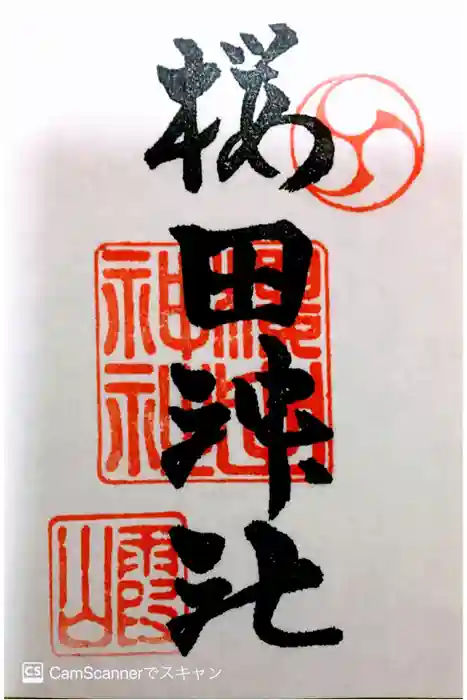 桜田神社
霞山
CS CamScannerでスキャン